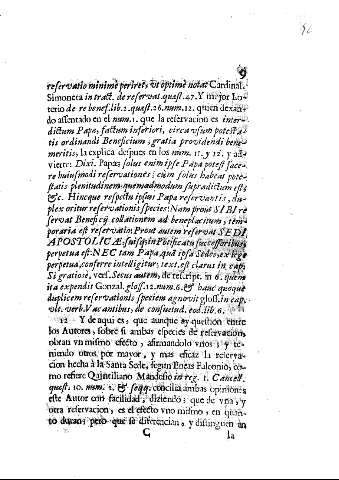 9
reservatio minimè periret, vt optimè notat Cardinal.
Simoneta in tract. de reservat. quæst. 47. Y mejor Lo-
terio de re benef. lib. 2. quæst. 26. num. 12. quien dexan-
do assentado en el num. 1. que la reservacion es inter-
dictum Papæ, factum inferiori, circa vsum potesta-
tis ordinandi Beneficium, gratia providendi bene-
meritis, la explica despues en los num. 11. y 12. y ad-
vierte: Dixi. Papæ; solus enim ipse Papa potest face-
re huiusmodi reservationes; cùm solus habeat pote-
statis plenitudinem quemadmodum supradictum est;
&c. Hincque respectu ipsius Papæ reservantis, du-
plex oritur reservationis species: Nam prout SIBI re
servat Beneficij collationem ad beneplacitum, tem-
poraria est reservatio. Prout autem reservat SEDI
APOSTOLICÆ, suisque in Pontificatu successoribus,
perpetua est: NEC tam Papa, quà ipsa Sedes, ex lege
perpetua, conferre intelligitur, text. est clarus in cap.
Si gratiose, vers. Secus autem, de rescript. in 6. quem
ita expendit Gonzal. gloss. 12. num. 6. & hanc quoque
duplicem reservationis speciem agnovit gloss. in cap.
vlt. verb. Vacantibus, de consuetud. eod. lib. 6.
12 Y de aqui es, que aunque ay question entre
los Autores, sobre si ambas especies de reservacion,
obran vn mismo efecto, afirmandolo vnos; y te-
niendo otros por mayor, y mas eficaz la reserva-
cion hecha à la Santa Sede, segun Eneas Falconio, co-
mo refiere Quintiliano Mandosio in reg. 1. Cancell.
quæst. 10. num. 1. & seqq. concilia ambas opiniones
este Autor con facilidad, diziendo; que de vna, y
otra reservacion, es el efecto vno mismo, en quan-
to duran; pero que se diferencian, y distinguen en
C la